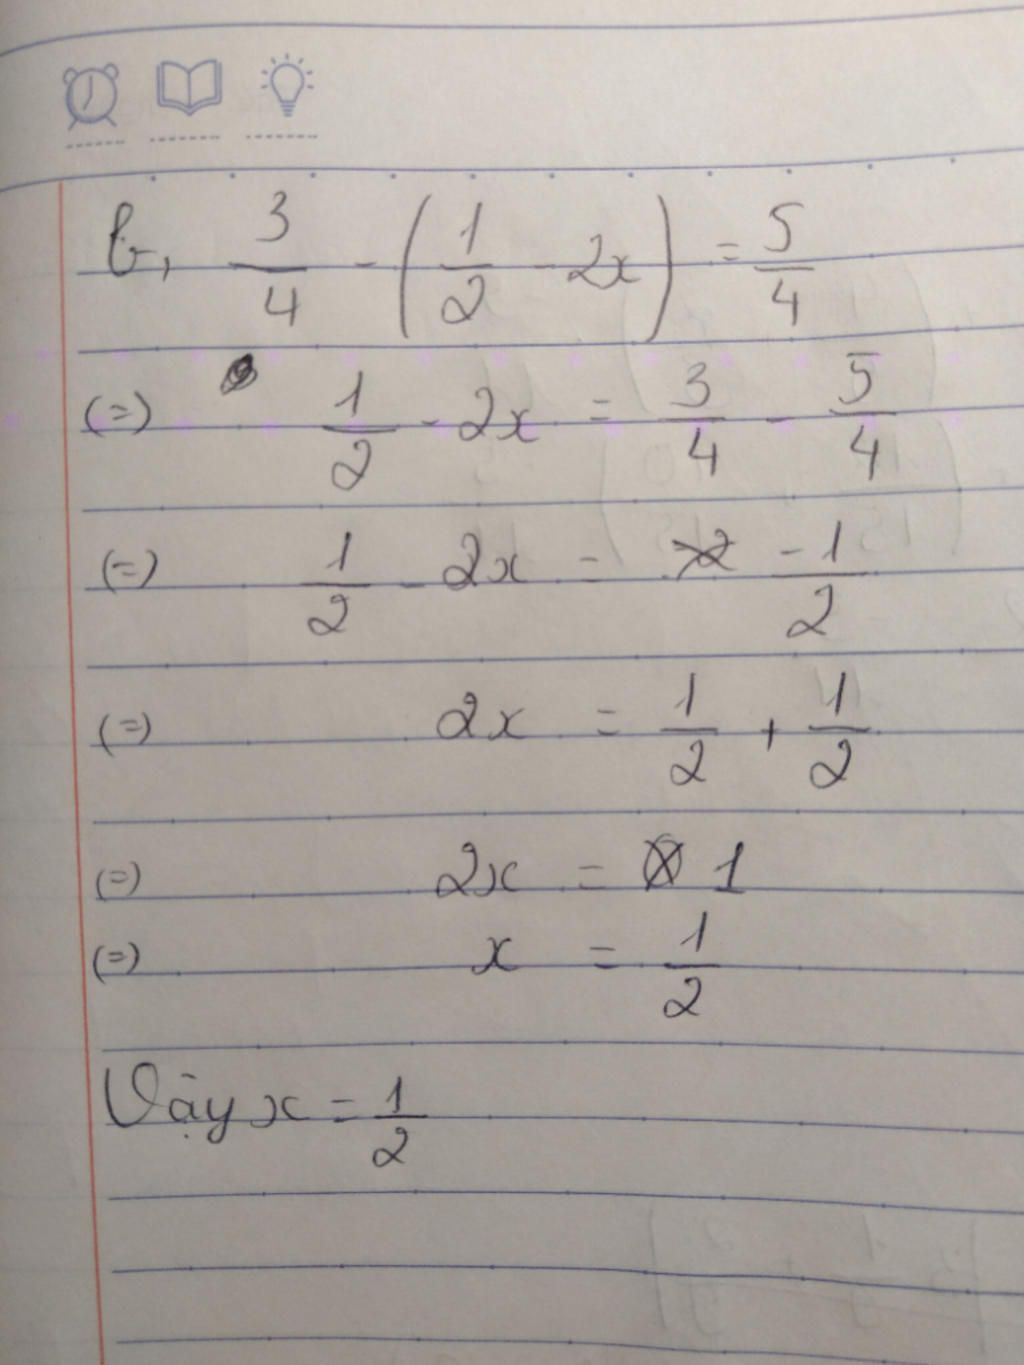 b, 3/4 - (1/2 - 2x) = 5/4
(=) 1/2 - 2x = 3/4 - 5/4
(=) 1/2 - 2x = -1/2
(=) 2x = 1/2 + 1/2
(=) 2x = 1
(=) x = 1/2
Vậy x = 1/2